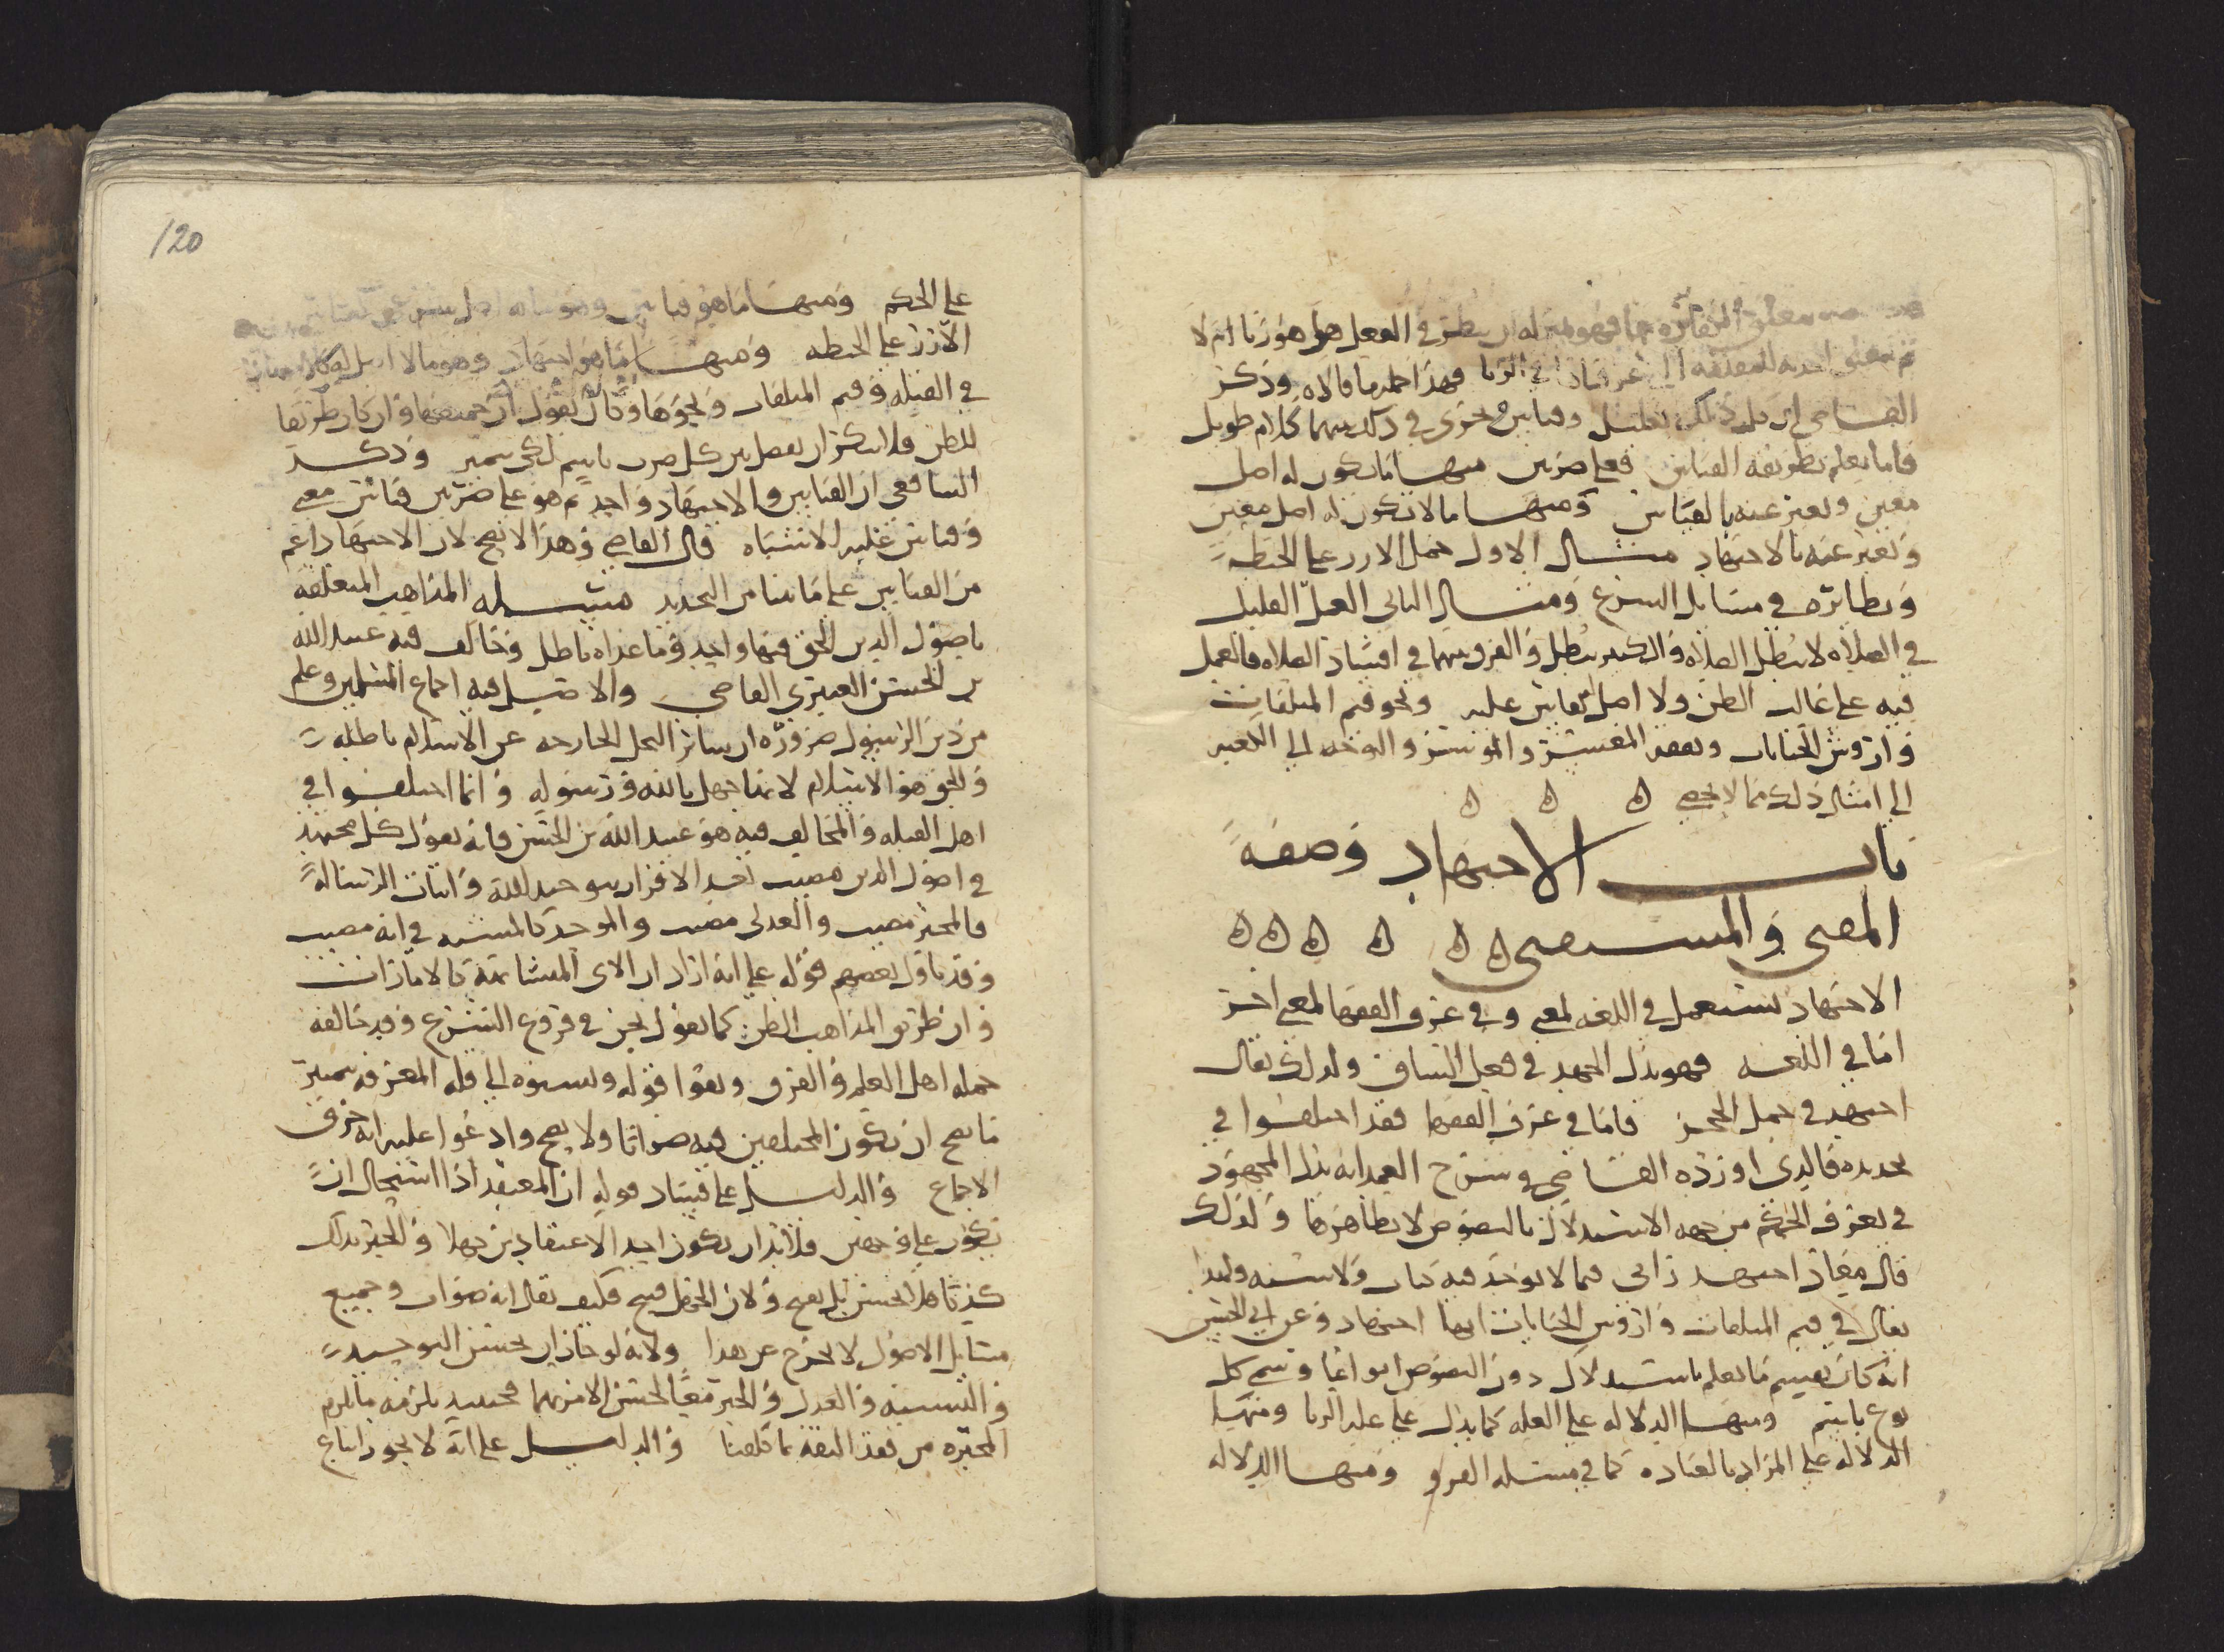 فهو بمنزلة ان ينظر في الفعل هل هو زنا ام لا
في الزنا فهذا جملة ما قالاه وذكر
القاضي ان ذلك تعليل وقياس وجرى في ذلك بينهما كلام طويل
فاما ما يعلم بطريقة القياس فعلى ضربين منها ما يكون له اصل
معين ويعبر عنه بالقياس ومنها ما لا يكون له اصل معين
ويعبر عنه بالاجتهاد مثال الاول حمل الارز على الحنطة
ونظائره في مسايل الشرع ومثال الثاني العمل القليل
في الصلاة لا يبطل الصلاة والكثير يبطل والفرق بينهما في افساد الصلاة فالعمل
فيه على غالب الظن ولا اصل يقاس عليه ونحو قيم المتلفات
واروش الجنايات ونفقة المعسر والموسر والتوجه الى الكعبة
الى امثال ذلك مما لا يحصى
باب الاجتهاد وصفة
المفتي والمستفتي
الاجتهاد يستعمل في اللغة لمعنى وفي عرف الفقها لمعنى اخر
اما في اللغة فهو بذل الجهد في فعل الشاق ولذلك يقال
اجتهد في حمل الحجر فاما في عرف الفقها فقد اختلفوا في
تحديده فالذي اورده القاضي في شرح العمد انه بذل المجهود
في تعرف الحكم من جهة الاستدلال بالنصوص لا بظاهرها ولذلك
قال معاذ اجتهد رائي فيما لا يوجد فيه كتاب ولا سنة ولهذا
يقال في قيم المتلفات واروش الجنايات انها اجتهاد وعن ابي الحسين
انه كان يقسم ما يعلم باستدلال دون النصوص انواعا ويسمي كل
نوع باسم ومنها الدلالة على العلة كما يدل على علة الربا ومنها
الدلالة على المراد بالعبادة كما في مسئلة القرو ومنها الدلالة
120
على الحكم ومنها ما هو قياس وهو ما له اصل
الارز على الحنطة ومنها ما هو اجتهاد وهو ما لا اصل له
في القبلة وقيم المتلفات ونحوها وكان يقول ان جميعها وان كان طريقها
للظن فلا ينكر ان يفصل بين كل ضرب باسم لكي يتميز وذكر
الشافعي ان القياس والاجتهاد واحد ثم هو على ضربين قياس معنى
وقياس غلبة الاشتباه قال القاضي وهذا لا يصح لان الاجتهاد اعم
من القياس على ما بينا من التحديد مسئلة المذاهب المتعلقة
باصول الدين الحق فيها واحد وما عداه باطل وخالف فيه عبيد الله
بن الحسن العنبري القاضي والاصل فيه اجماع المسلمين وعلم
من دين الرسول ضرورة ان ساير النحل الخارجة عن الاسلام باطلة
والحق هو الاسلام لانها جهل بالله ورسوله وانما اختلفوا في
اهل القبلة والمخالف فيه هو عبيد الله بن الحسن فانه يقول كل مجتهد
في اصول الدين مصيب بعد الاقرار بتوحيد الله واثبات الرسالة
فالمجبر مصيب والعدلي مصيب والموحد كالمشبه في انه مصيب
وقد تاول بعضهم قوله على انه اراد ان الاي المتشابهة كالامارات
وان طريق المذاهب الظن كما يقول نحن في فروع الشرع وقد خالفه
جملة اهل العلم والفرق ونفوا قوله ونسبوه الى قلة المعرفة بتمييز
ما يصح ان يكون المختلفين فيه صوابا ولا يصح وادعوا عليه انه خرق
الاجماع والدليل على فساد قوله ان المعتقد اذا استحال ان
يكون على وجهين فلا بد ان يكون احد الاعتقادين جهلا والخبر بذلك
كذبا هل يحسن بل يقبح ولان الجهل قبيح فكيف يقال انه صواب وجميع
مسايل الاصول لا تخرج عن هذا ولانه لو جاز ان يحسن التوحيد
والتشبيه والعدل والجبر معا لحسن الامر بهما فحينئذ يلزمه ما يلزم
المجبرة من فقد الثقة بما كلفنا والدليل على انه لا يجوز اتباع